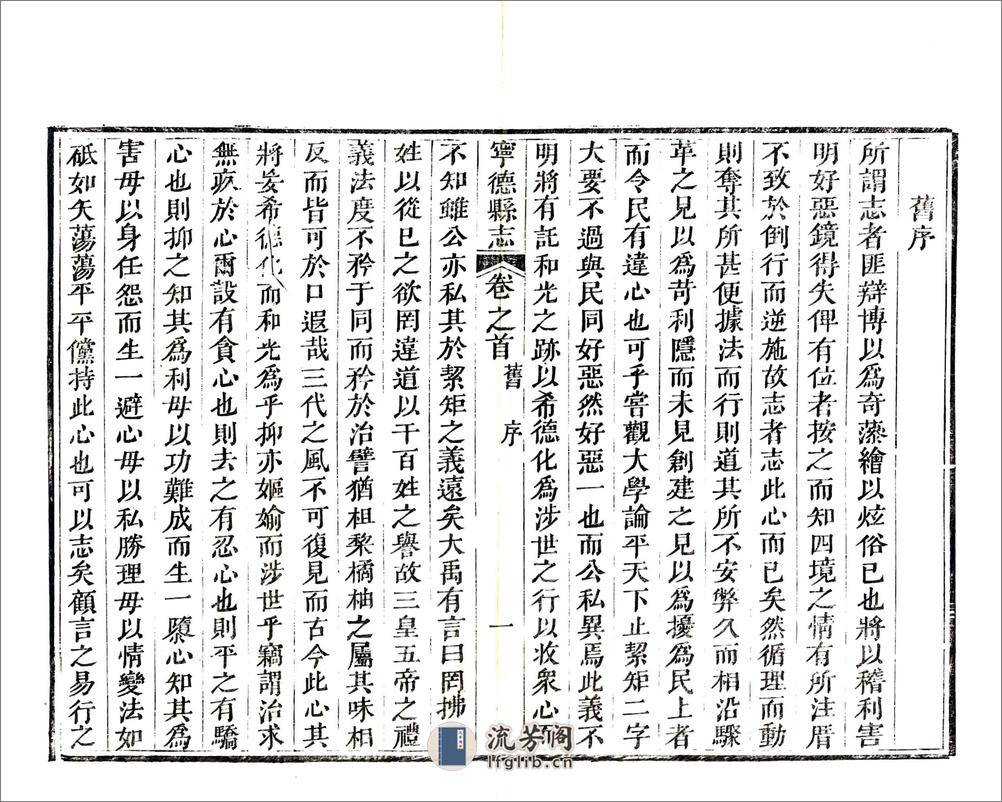 舊序
所謂志者匪辯博以為奇藻繪以炫俗已也將以稽利害
明好惡鏡得失俾有位者按之而知四境之情有所注厝
不致於倒行而逆施故志者志此心而已矣然循理而動
則奪其所甚便據法而行則道其所不安弊久而相沿驟
革之見以為苛利隱而未見創建之見以為擾為民上者
而令民有違心也可乎嘗觀大學論平天下止絜矩二字
大要不過與民同好惡然好惡一也而公私異焉此義不
明將有託和光之跡以希德化為涉世之行以收衆心
寧德縣志 卷之首 舊序 一
不知雖公亦私其於絜矩之義遠矣大禹有言曰罔拂
姓以從已之欲罔違道以干百姓之譽故三皇五帝之禮
義法度不矜于同而矜於治譬猶柤棃橘柚之屬其味相
反而皆可於口遐哉三代之風不可復見而古今此心其
將妄希德化而和光為乎抑亦嫗婾而涉世乎竊謂治求
無疚於心爾設有貪心也則去之有忍心也則平之有驕
心也則抑之知其為利毋以功難成而生一隳心知其為
害毋以身任怨而生一避心毋以私勝理毋以情變法如
砥如矢蕩蕩平平儻持此心也可以志矣顧言之易行之
流芳阁
lfglib.cn